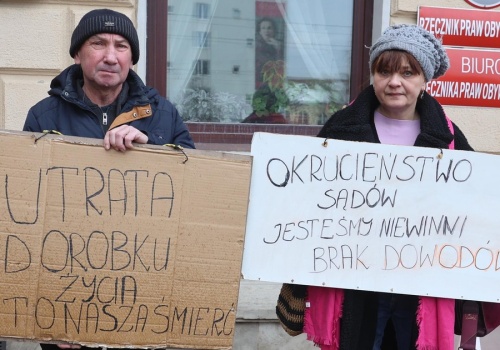 RZECZNIK PRAW OBY
BIURO
RZECZNIKA PRAW OBYW
UTRATA
DOROBKU
ŻYCIA
TO NASZA ŚMIERĆ
OKRUCIEŃSTWO
SĄDÓW
JESTEŚMY NIEWINNI
BRAK DOWODÓW